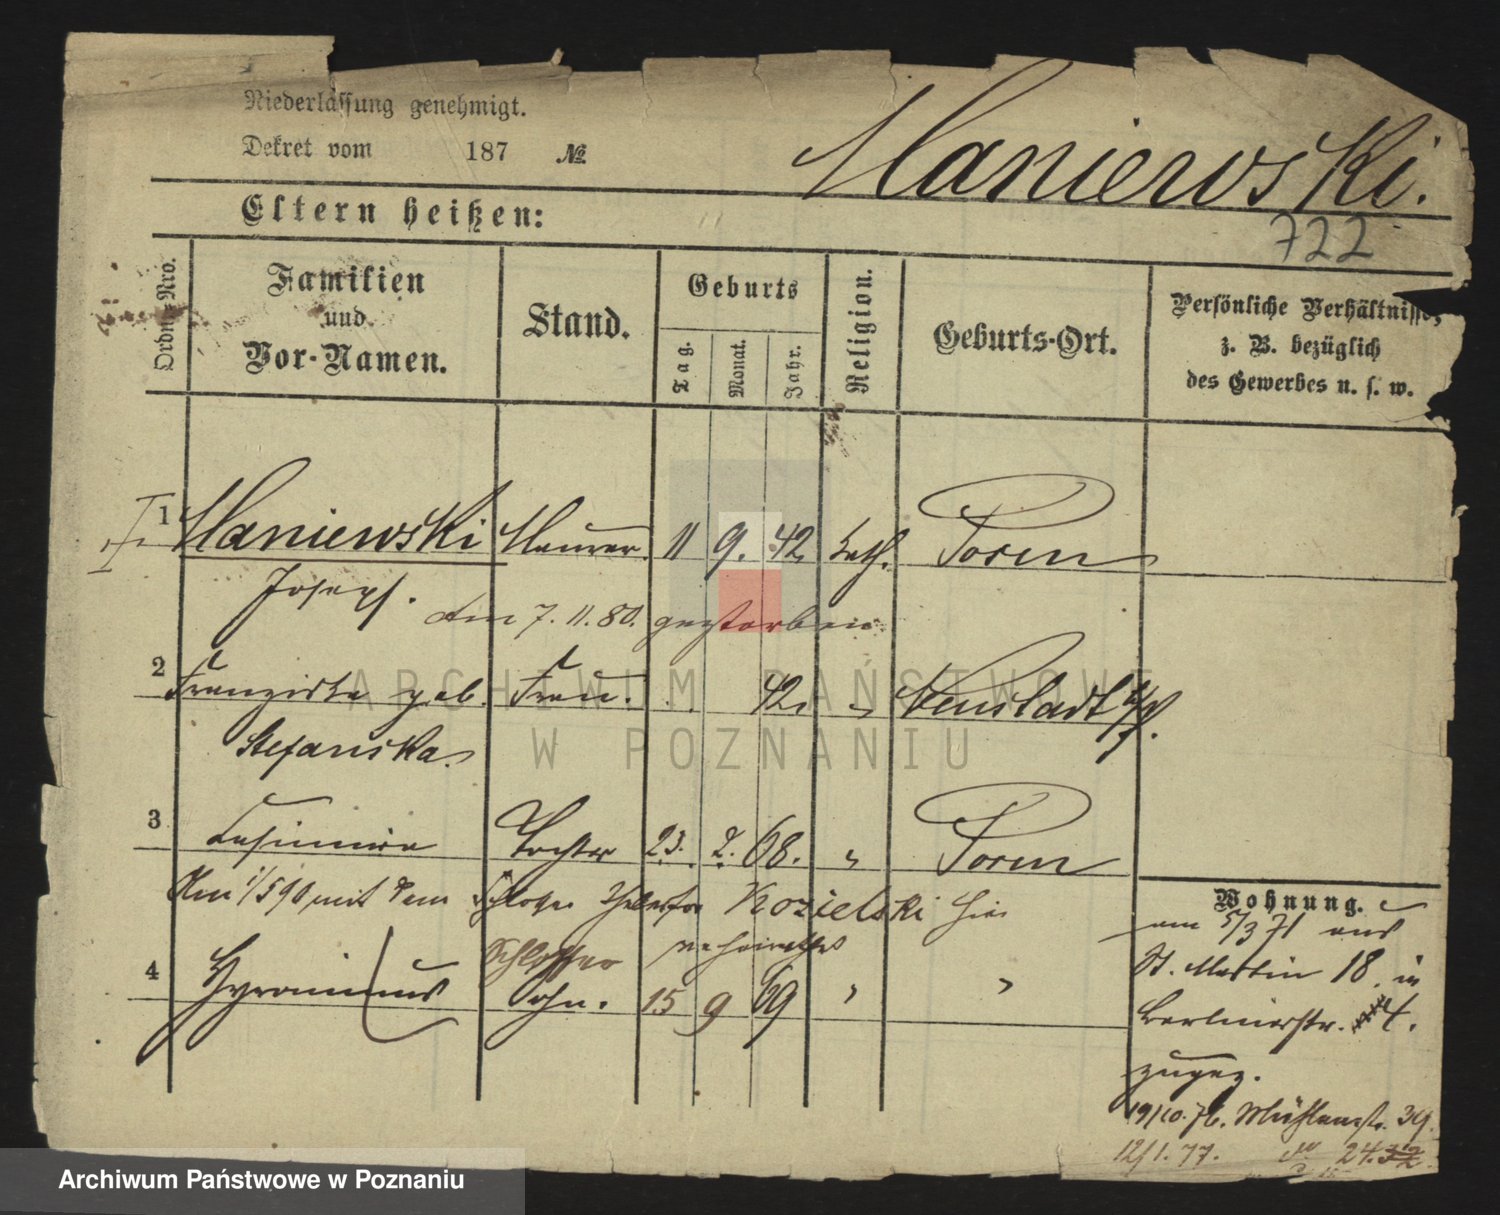 Niederlassung genehmigt.
Dekret vom 187 №
Maniewski.
Eltern heißen:
722
Ordn.-Nro.
Familien
und
Vor-Namen.
Stand.
Geburts
Tag.
Monat.
Jahr.
Religion.
Geburts-Ort.
Persönliche Verhältnisse,
z. B. bezüglich
des Gewerbes u. s. w.
1 Maniewski Maurer. 11 9. 42 kath. Posen
Joseph.
am 7. 11. 80. gestorben.
2 Franziska geb. Frau. 42. " Neustadt
Stefanska.
3 Casimira Tochter 23. 2. 68. " Posen
Am 1/5 90 mit dem Schlosser Kozielski hier
verheirathet
4 Hyronimus Schlosser
Sohn. 15 9 69 " "
Wohnung.
am 5/3 71 aus
St. Martin 18. in
Berlinerstr. 4.
zugez.
19/10. 76. Mühlenstr. 39.
12/1. 77. do 24.
ARCHIWUM PAŃSTWOWE
W POZNANIU
Archiwum Państwowe w Poznaniu